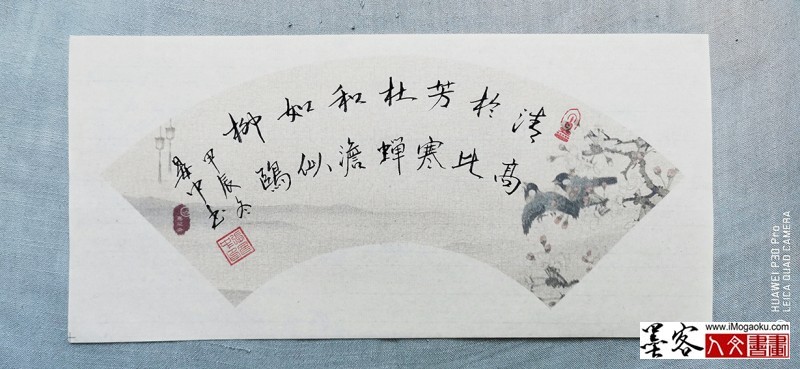 清於芳杜和如柳
高比寒蝉澹似鷗
甲辰冬
中书
HUAWEI P30 Pro
LEICA QUAD CAMERA
墨客 www.iMogaoku.com
人文書畫